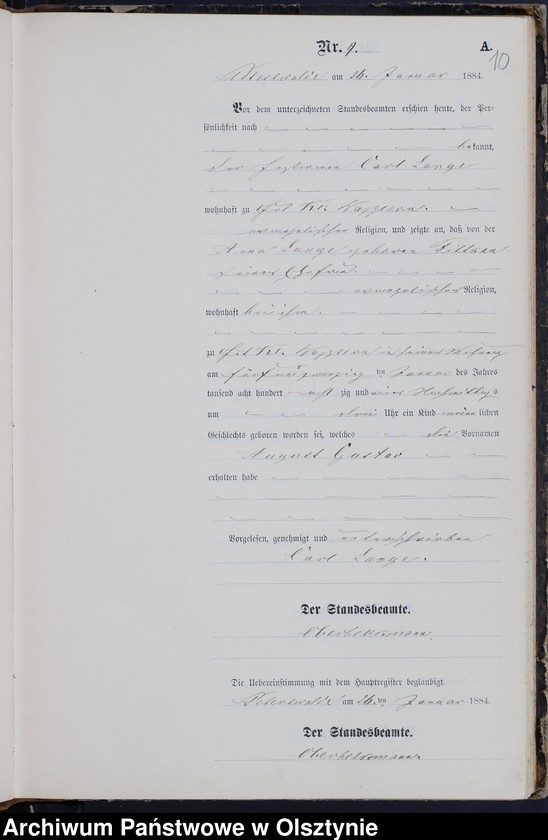 Nr. 9.
A.
10
am 26. Januar 1884.
Vor dem unterzeichneten Standesbeamten erschien heute, der Per-
sönlichkeit nach
bekannt,
der Carl Lange
wohnhaft zu Gut Kl.
evangelischer Religion, und zeigte an, daß von der
Anna Lange geborene Dittkrn
seiner Ehefrau
evangelischer Religion,
wohnhaft bei ihm.
zu Gut Kl. in seiner Wohnung
am fünf und zwanzig ten Januar des Jahres
tausend acht hundert acht zig und vier Nachmittags
um drei Uhr ein Kind männlichen
Geschlechts geboren worden sei, welches die Vornamen
August Gustav
erhalten habe
Vorgelesen, genehmigt und unterschrieben
Carl Lange.
Der Standesbeamte.
Die Uebereinstimmung mit dem Hauptregister beglaubigt.
am 26. ten Januar 1884.
Der Standesbeamte.
Archiwum Państwowe w Olsztynie